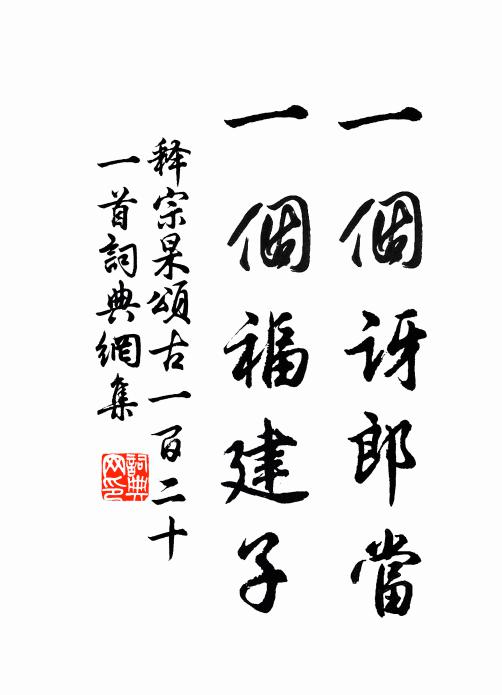 一個訝郎當
一個福建子
释宗杲頌古一百二十
一首詞典網集